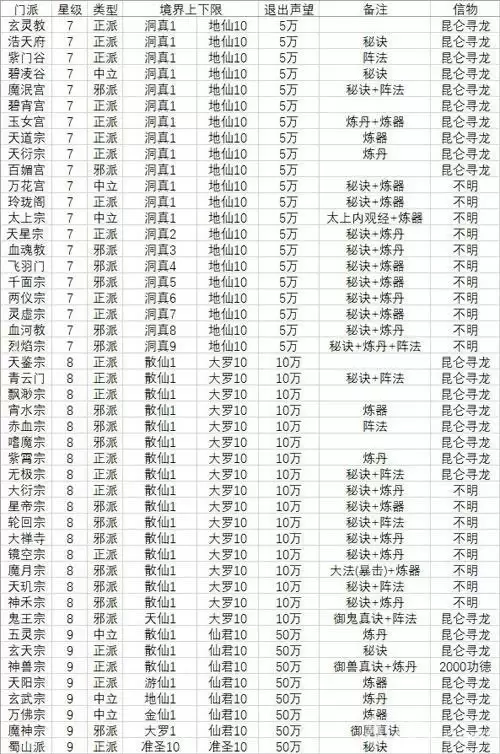 门派 星级 类型 境界上下限 退出声望 备注 信物
玄灵教 7 正派 洞真1 地仙10 5万 昆仑寻龙
浩天府 7 正派 洞真1 地仙10 5万 秘诀 昆仑寻龙
紫门谷 7 正派 洞真1 地仙10 5万 阵法 昆仑寻龙
碧凌谷 7 中立 洞真1 地仙10 5万 秘诀 昆仑寻龙
魔泯宫 7 邪派 洞真1 地仙10 5万 秘诀+阵法 昆仑寻龙
碧宵宫 7 正派 洞真1 地仙10 5万 昆仑寻龙
玉女宫 7 正派 洞真1 地仙10 5万 炼丹+炼器 昆仑寻龙
天道宗 7 正派 洞真1 地仙10 5万 炼器 昆仑寻龙
天衍宗 7 正派 洞真1 地仙10 5万 炼丹 昆仑寻龙
百媚宫 7 邪派 洞真1 地仙10 5万 昆仑寻龙
万花宫 7 中立 洞真1 地仙10 5万 秘诀+炼器 不明
玲珑阁 7 正派 洞真1 地仙10 5万 秘诀+炼器 不明
太上宗 7 中立 洞真1 地仙10 5万 太上内观经+炼器 不明
天星宗 7 正派 洞真2 地仙10 5万 秘诀+炼丹 不明
血魂教 7 邪派 洞真3 地仙10 5万 秘诀+炼丹 不明
飞羽门 7 邪派 洞真4 地仙10 5万 秘诀+炼器 不明
千面宗 7 邪派 洞真5 地仙10 5万 秘诀+炼器 不明
两仪宗 7 正派 洞真6 地仙10 5万 秘诀+炼丹 不明
灵虚宗 7 正派 洞真7 地仙10 5万 秘诀+炼器 不明
血河教 7 邪派 洞真8 地仙10 5万 秘诀+炼丹 不明
烈焰宗 7 邪派 洞真9 地仙10 5万 秘诀+炼丹+阵法 不明
天鉴宗 8 正派 散仙1 大罗10 10万 昆仑寻龙
青云门 8 正派 散仙1 大罗10 10万 秘诀+阵法 昆仑寻龙
飘渺宗 8 正派 散仙1 大罗10 10万 昆仑寻龙
宵水宗 8 邪派 散仙1 大罗10 10万 炼器 昆仑寻龙
赤血宗 8 邪派 散仙1 大罗10 10万 阵法 昆仑寻龙
嗜魔宗 8 邪派 散仙1 大罗10 10万 昆仑寻龙
紫霄宗 8 正派 散仙1 大罗10 10万 炼丹 昆仑寻龙
无极宗 8 正派 散仙1 大罗10 10万 秘诀+阵法 昆仑寻龙
大衍宗 8 正派 散仙1 大罗10 10万 秘诀+炼丹 不明
星帝宗 8 邪派 散仙1 大罗10 10万 秘诀+炼器 不明
轮回宗 8 邪派 散仙1 大罗10 10万 秘诀+阵法 不明
大禅寺 8 邪派 散仙1 大罗10 10万 秘诀+炼丹 不明
镜空宗 8 正派 散仙1 大罗10 10万 秘诀+炼丹 不明
魔月宗 8 邪派 散仙1 大罗10 10万 大法(暴击)+炼器 不明
天玑宗 8 邪派 散仙1 大罗10 10万 秘诀+阵法 不明
神禾宗 8 邪派 散仙1 大罗10 10万 秘诀+炼丹 不明
鬼王宗 8 邪派 天仙1 大罗10 10万 御鬼真诀+阵法 昆仑寻龙
五灵宗 9 中立 散仙1 仙君10 50万 炼丹 昆仑寻龙
玄天宗 9 正派 散仙1 仙君10 50万 秘诀 昆仑寻龙
神兽宗 9 正派 散仙1 仙君10 50万 御兽真诀+炼丹 2000功德
天阳宗 9 正派 游仙1 仙君10 50万 炼器 昆仑寻龙
玄武宗 9 中立 地仙1 仙君10 50万 炼丹 昆仑寻龙
万佛宗 9 中立 金仙1 仙君10 50万 炼器 昆仑寻龙
魔神宗 9 邪派 大罗1 仙君10 50万 御魔真诀
蜀山派 9 正派 准圣10 仙君10 50万 秘诀 昆仑寻龙